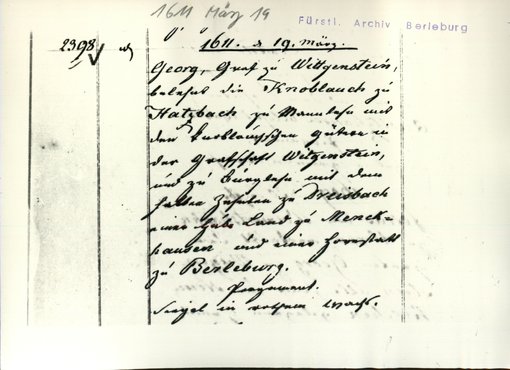 1611 März 19
Fürstl. Archiv Berleburg
2398
1611. d 19. März.
Georg, Graf zu Wittgenstein,
belehnt die Knoblauch zu
Hatzbach zu Mannlehn mit
den knoblauchschen Gütern in
der Grafschaft Witgenstein,
und zu Burglehn mit dem
halben Zehnten zu Dreisbach
einer Hube Land zu Menck-
hausen und einer Hovestatt
zu Berleburg.
Pergament.
Siegel in rothem Wachs.